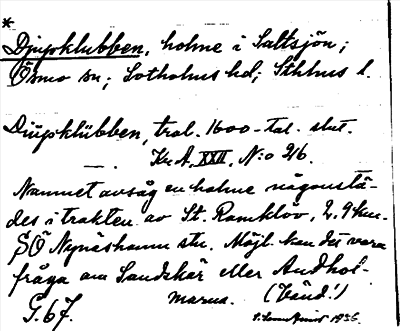 *
Djupklubben, holme i Saltsjön;
Ösmo sn; Sotholms hd; Sthlms l.
Diüpklübben, trol. 1600-tal. slut.
Kr. A, XXII, N:o 26.
Namnet avsåg en holme någonstä-
des i trakten av St. Ramklöv, 2,9 km.
SÖ Nynäshamn stn. Möjl. kan det vara
fråga om Sandskär eller Andhol-
marna. (Vänd!)
G. 67. 1936.